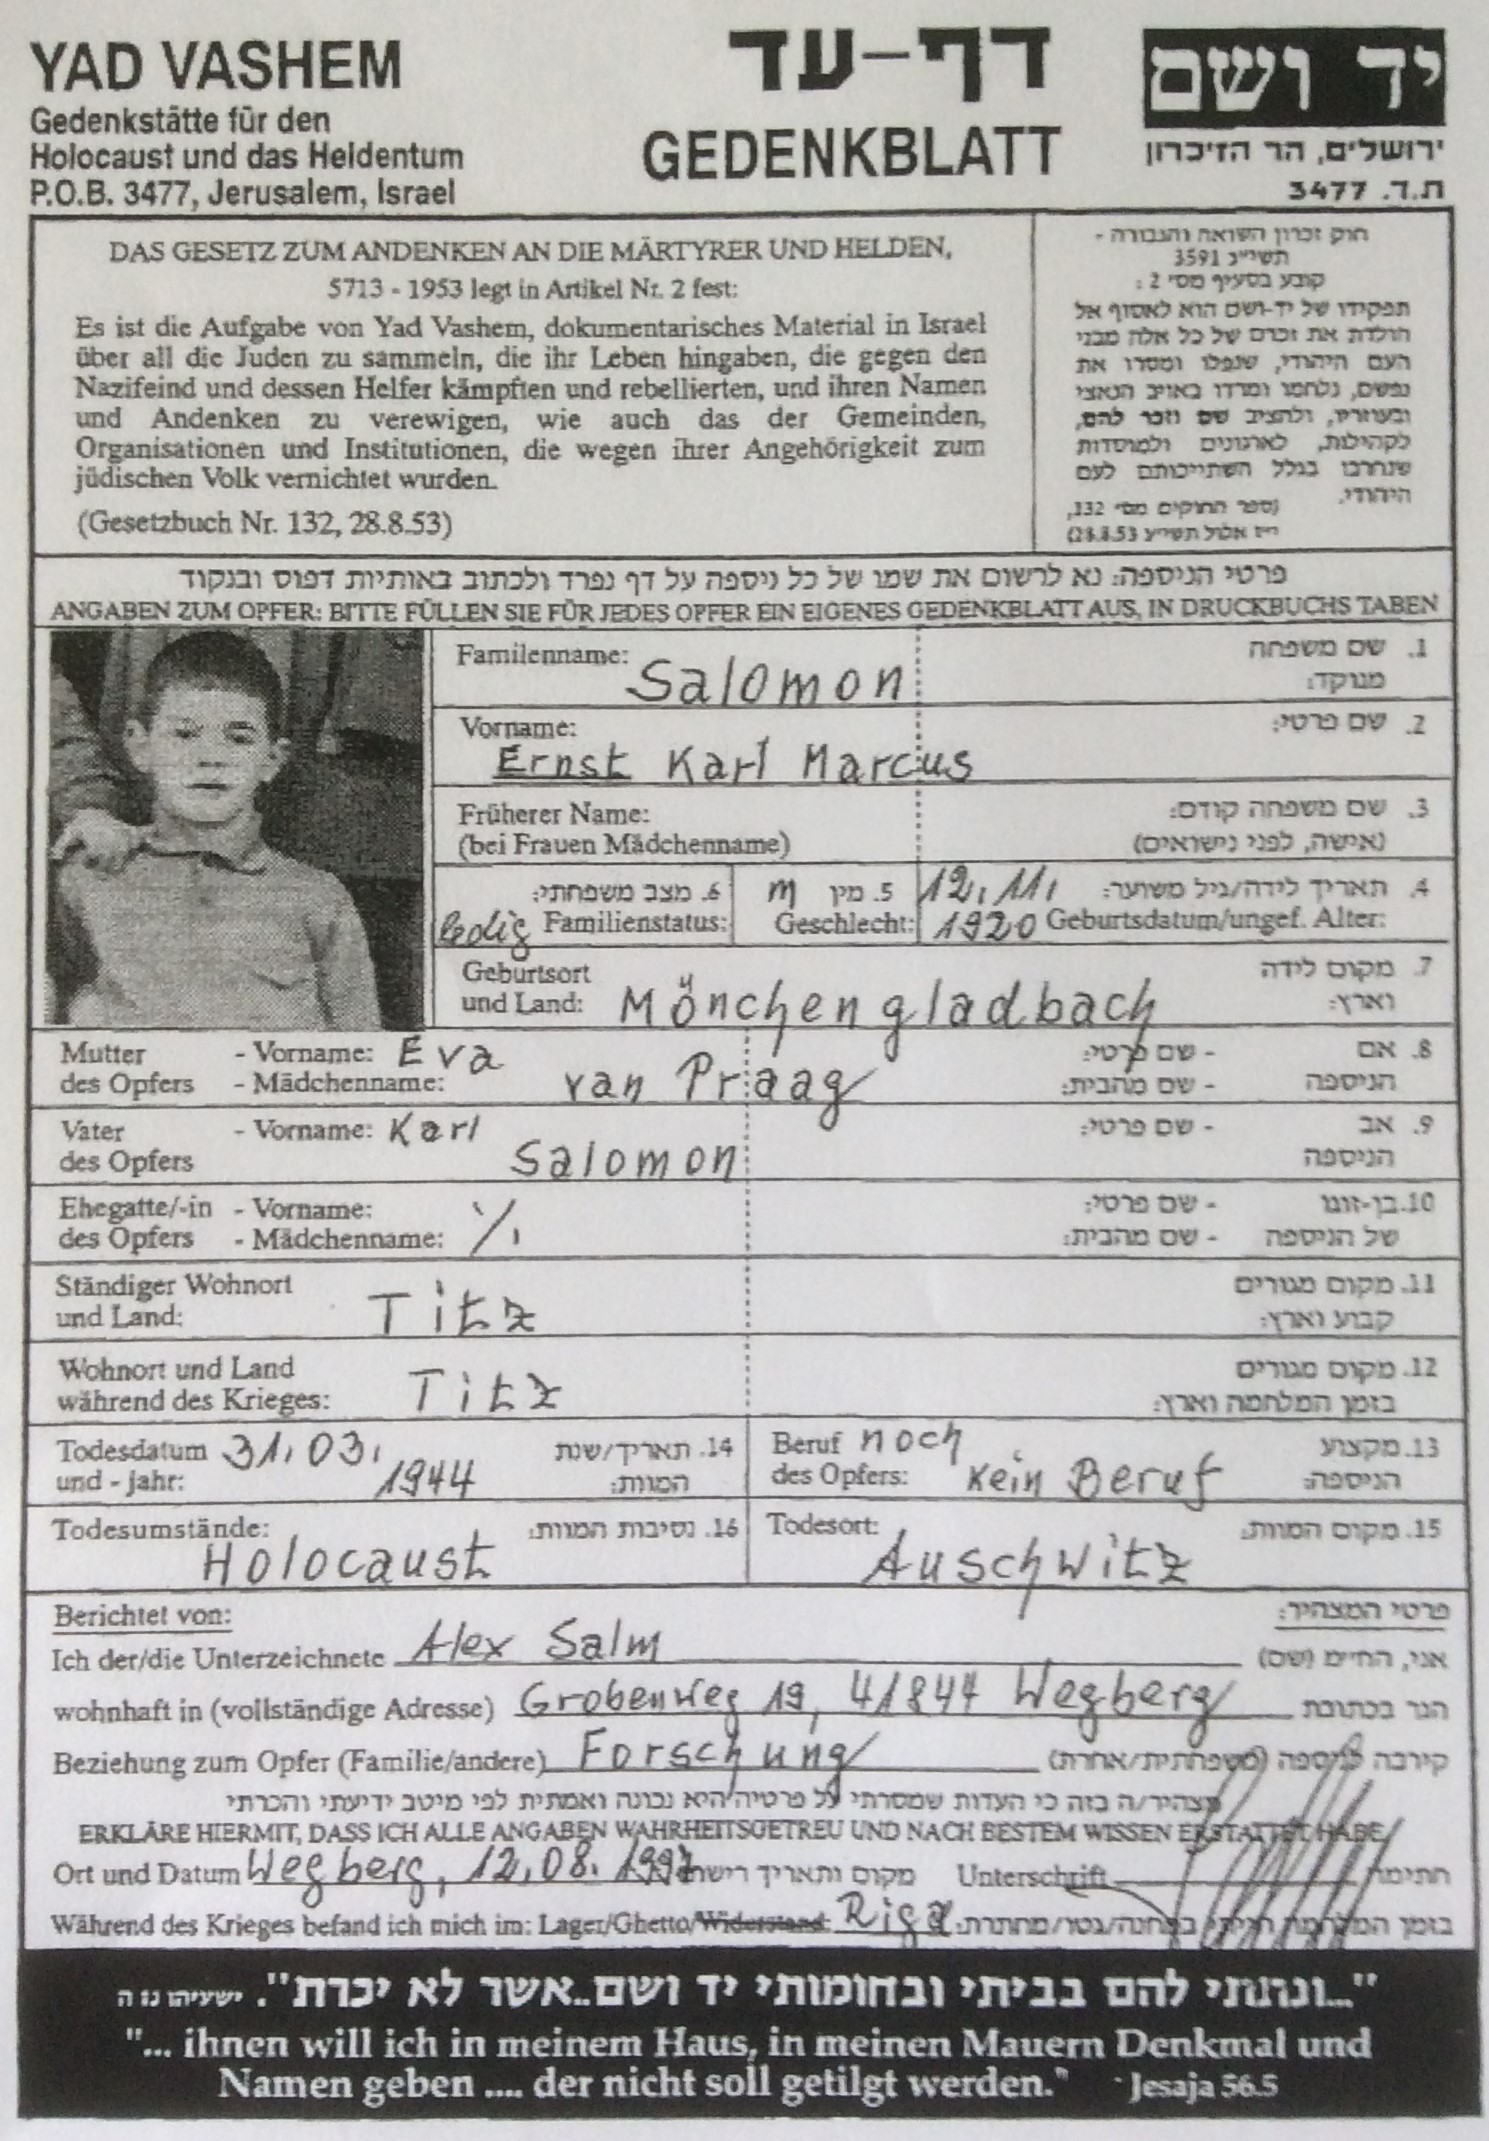 YAD VASHEM
Gedenkstätte für den
Holocaust und das Heldentum
P.O.B. 3477, Jerusalem, Israel
דף-עד
GEDENKBLATT
יד ושם
ירושלים, הר הזיכרון
ת.ד. 3477
DAS GESETZ ZUM ANDENKEN AN DIE MÄRTYRER UND HELDEN,
5713 - 1953 legt in Artikel Nr. 2 fest:
Es ist die Aufgabe von Yad Vashem, dokumentarisches Material in Israel
über all die Juden zu sammeln, die ihr Leben hingaben, die gegen den
Nazifeind und dessen Helfer kämpften und rebellierten, und ihren Namen
und Andenken zu verewigen, wie auch das der Gemeinden,
Organisationen und Institutionen, die wegen ihrer Angehörigkeit zum
jüdischen Volk vernichtet wurden.
(Gesetzbuch Nr. 132, 28.8.53)
חוק זכרון השואה והגבורה -
תשי"ג 3591
קובע בסעיף מס' 2 :
תפקידו של יד-ושם הוא לאסוף אל
המולדת את זכרם של כל אלה מבני
העם היהודי, שנפלו ומסרו את
נפשם, נלחמו ומרדו באויב הנאצי
ובעוזריו, ולהציב שם וזכר להם,
לקהילות, לארגונים ולמוסדות
שנחרבו בגלל השתייכותם לעם
היהודי.
(ספר החוקים מס' 132,
י"ז אלול תשי"ג 28.8.53)
פרטי הניספה: נא לרשום את שמו של כל ניספה על דף נפרד ולכתוב באותיות דפוס ובנקוד
ANGABEN ZUM OPFER: BITTE FÜLLEN SIE FÜR JEDES OPFER EIN EIGENES GEDENKBLATT AUS, IN DRUCKBUCHS TABEN
Familenname: Salomon 1. שם משפחה
מנוקד:
Vorname: 2. שם פרטי:
Ernst Karl Marcus
Früherer Name: 3. שם משפחה קודם:
(bei Frauen Mädchenname) (אישה, לפני נישואים)
6. מצב משפחתי: m 5. מין 12.11. 4. תאריך לידה/גיל משוער:
ledig Familienstatus: Geschlecht: 1920 Geburtsdatum/ungef. Alter:
Geburtsort 7. מקום לידה
und Land: Mönchengladbach וארץ:
Mutter - Vorname: Eva 8. אם - שם פרטי:
des Opfers - Mädchenname: van Praag הניספה - שם מהבית:
Vater - Vorname: Karl 9. אב - שם פרטי:
des Opfers Salomon הניספה
Ehegatte/-in - Vorname: 10. בן-זוגו - שם פרטי:
des Opfers - Mädchenname: של הניספה - שם מהבית:
Ständiger Wohnort 11. מקום מגורים
und Land: Titz קבוע וארץ:
Wohnort und Land 12. מקום מגורים
während des Krieges: Titz בזמן המלחמה וארץ:
Todesdatum 31.03. 14. תאריך/שנת Beruf noch 13. מקצוע
und - jahr: 1944 המוות: des Opfers: kein Beruf הניספה:
Todesumstände: 16. נסיבות המוות: Todesort: 15. מקום המוות:
Holocaust Auschwitz
Berichtet von: פרטי המצהיר:
Ich der/die Unterzeichnete Alex Salm אני, החי״מ (שם)
wohnhaft in (vollständige Adresse) Grobenweg 19, 41844 Wegberg הגר בכתובת
Beziehung zum Opfer (Familie/andere) Forschung קירבה לניספה (משפחתית/אחרת)
מצהיר/ה בזה כי העדות שמסרתי על פרטיה היא נכונה ואמתית לפי מיטב ידיעתי והכרתי
ERKLÄRE HIERMIT, DASS ICH ALLE ANGABEN WAHRHEITSGETREU UND NACH BESTEM WISSEN ERSTATTET HABE
Ort und Datum Wegberg, 12.08.1997 מקום ותאריך רישום Unterschrift חתימה
Während des Krieges befand ich mich im: Lager/Ghetto/Widerstand: Riga בזמן המלחמה הייתי במחנה/גטו/מחתרת:
"...ונתתי להם בביתי ובחומותי יד ושם..אשר לא יכרת". ישעיהו נו ה
"... ihnen will ich in meinem Haus, in meinen Mauern Denkmal und
Namen geben .... der nicht soll getilgt werden." Jesaja 56.5